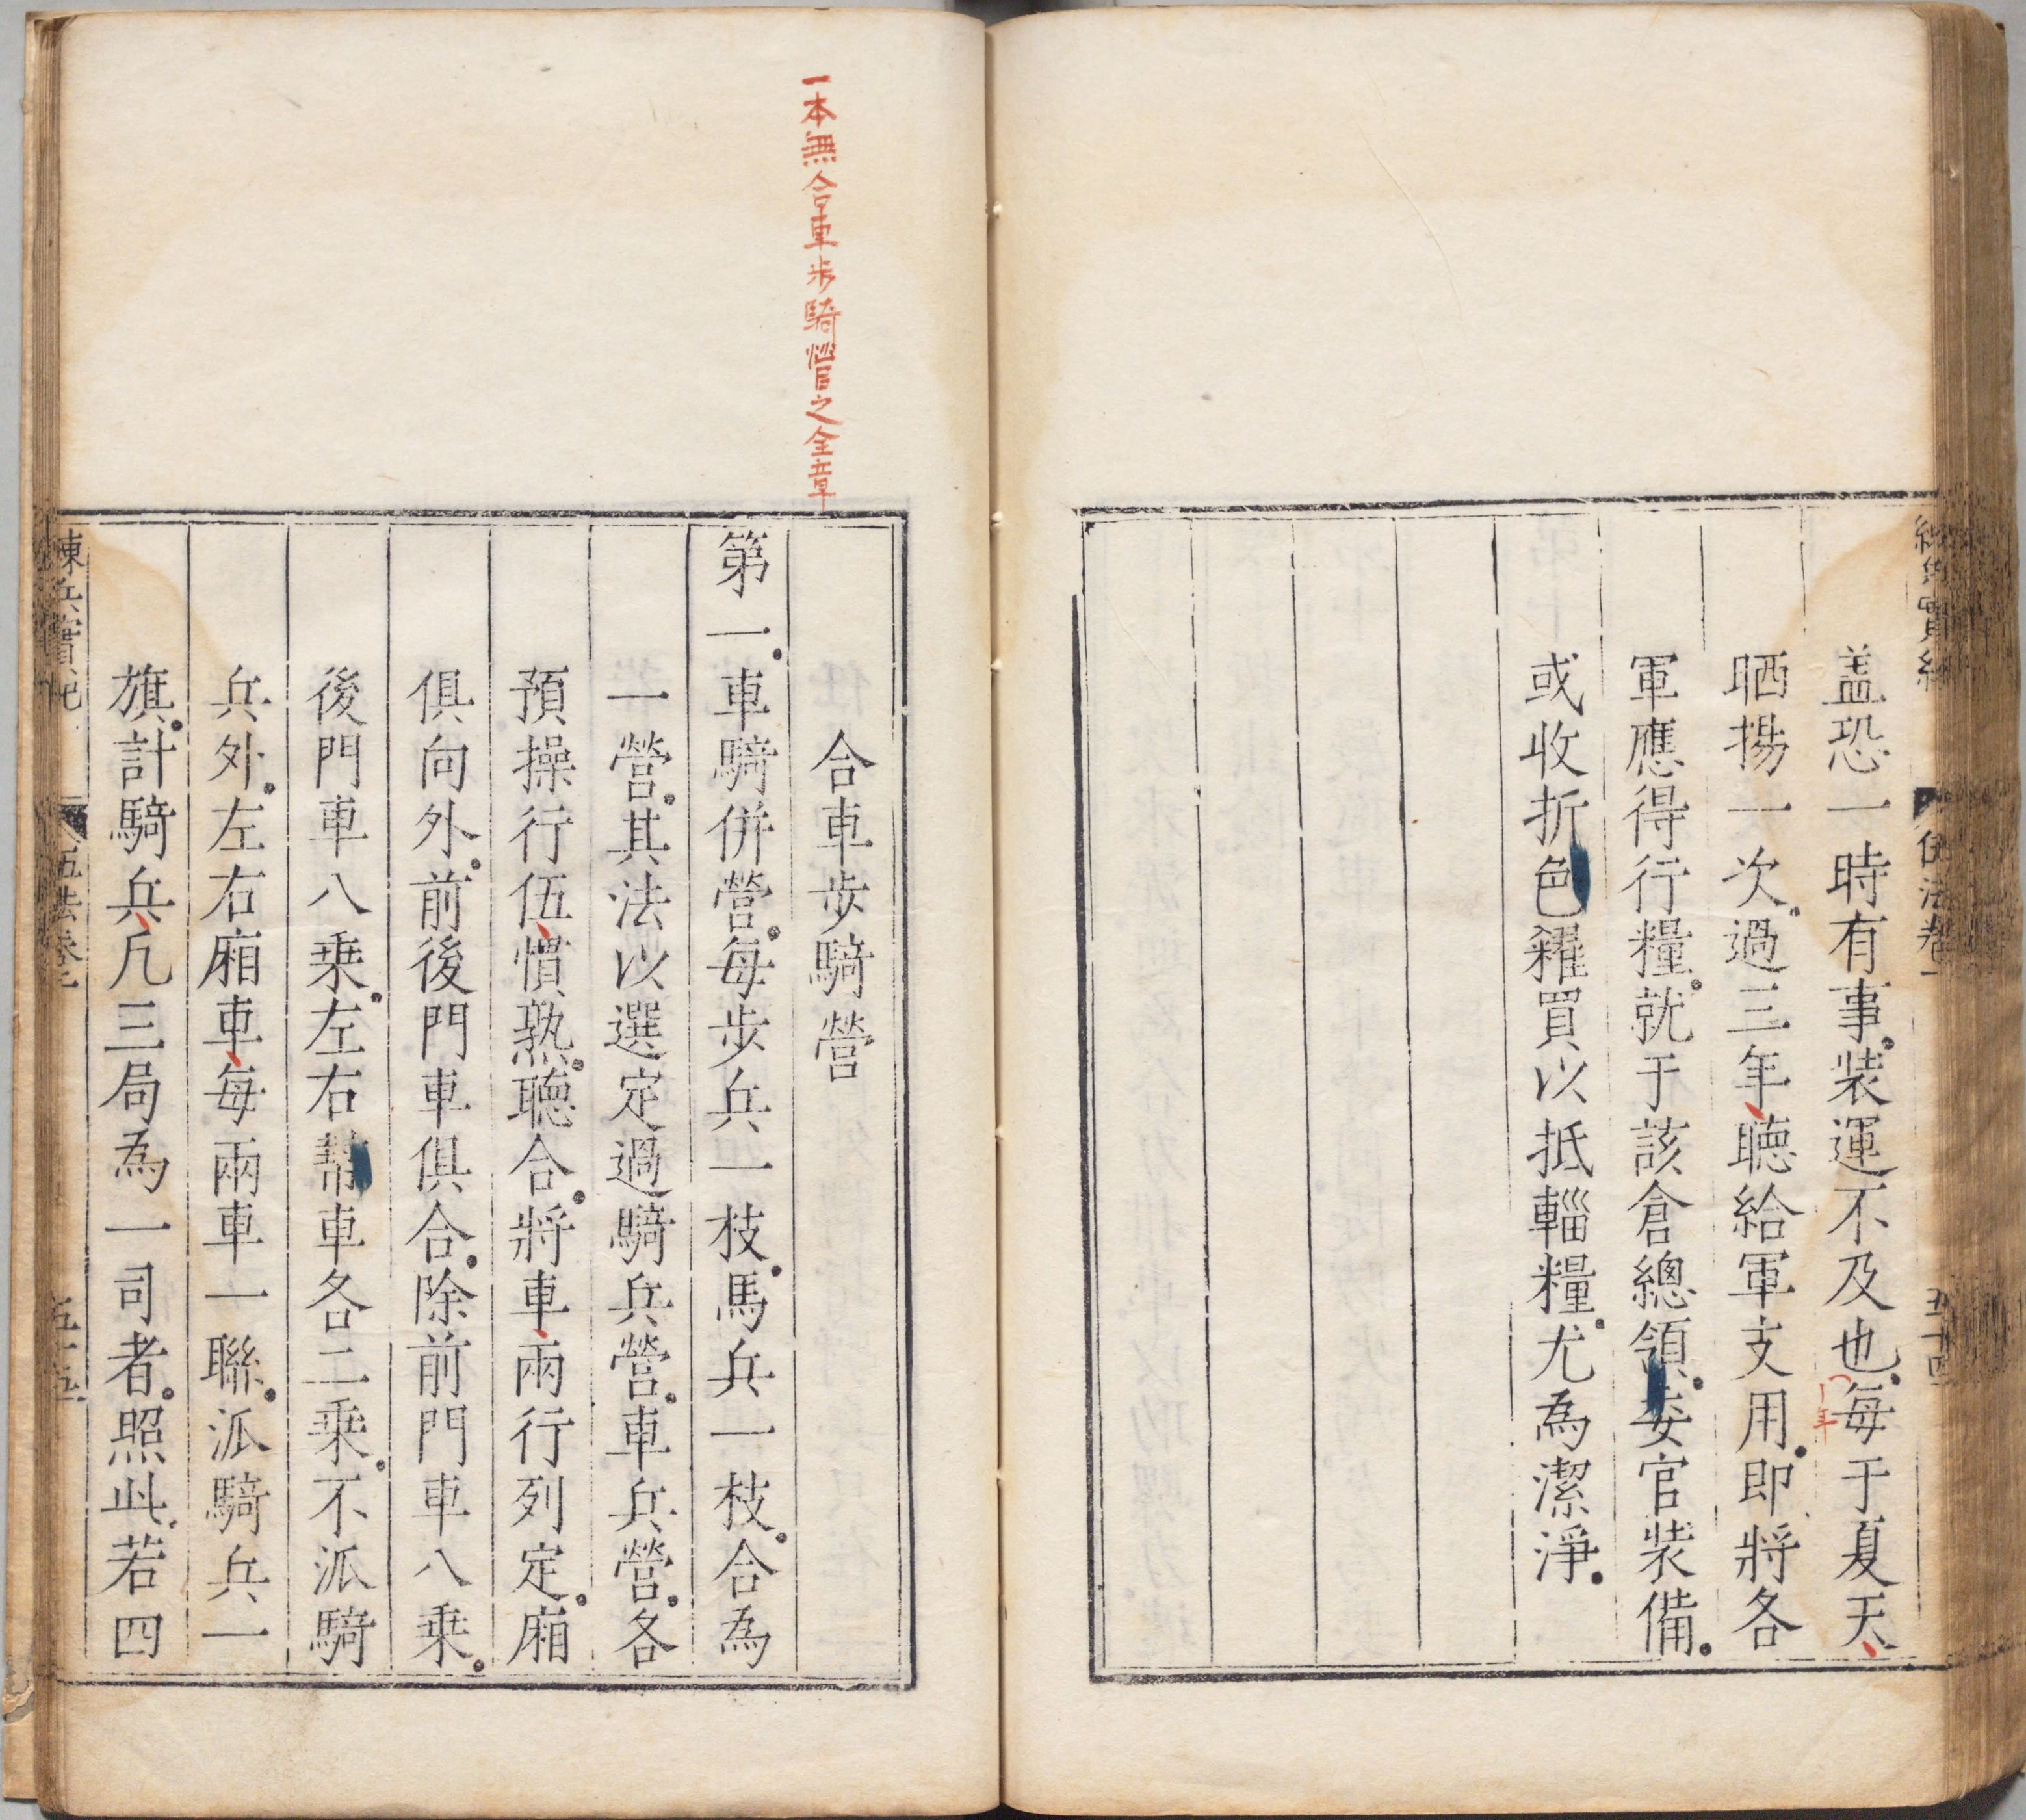 盖恐一時有事装運不及也每于夏天
一年
晒揚一次過三年聴給軍支用即將各
軍應得行糧就于該倉總領委官装備
或收折色糴買以抵輜糧尤為潔淨
伍法卷一
五十四
一本無合車步騎營之全章
合車步騎營
第一車騎併營每步兵一枝馬兵一枝合為
一營其法以選定過騎兵營車兵營各
預操行伍慣熟聴合將車兩行列定廂
俱向外前後門車俱合除前門車八乗
後門車八乗左右幇車各二乗不派騎
兵外左右廂車每兩車一聯派騎兵一
旗計騎兵凡三局為一司者照此若四
練兵實紀
伍法卷一
五十五